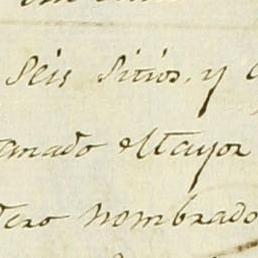 Seis Sitios, y
anado elTayor
dero nombrado